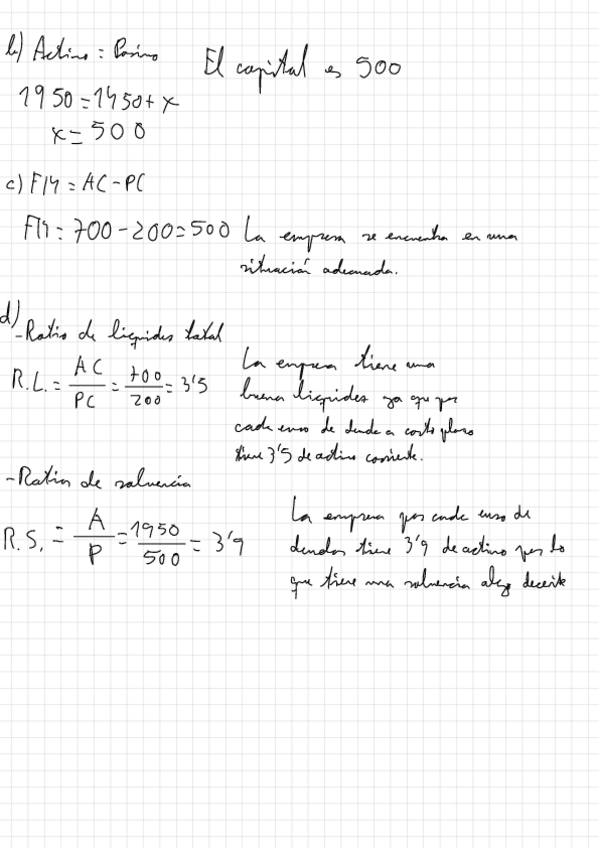 b) Activo = Pasivo
El capital es 500
1950 = 1450 + x
x = 500
c) FM = AC - PC
FM = 700 - 200 = 500 La empresa se encuentra en una
situación adecuada.
d)
- Ratio de liquides total
R.L. = AC/PC = 700/200 = 3'5
La empresa tiene una
buena liquides ya que por
cada euro de deuda a corto plazo
tiene 3'5 de activo corriente.
- Ratio de solvencia
R.S. = A/P = 1950/500 = 3'9
La empresa por cada euro de
deudas tiene 3'9 de activo por lo
que tiene una solvencia algo